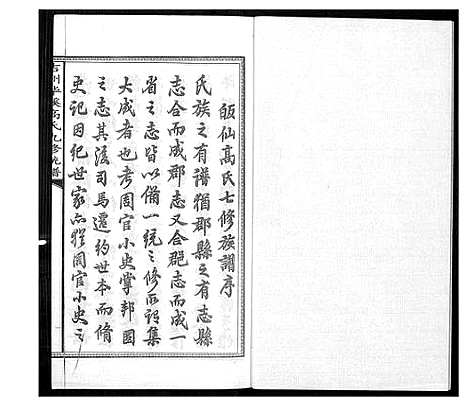 皈仙高氏七修族譜序
氏族之有譜猶郡縣之有志縣
志合而成郡志又合郡志而成一
省之志皆以備一統之修而謂集
大成者也考周官小史掌邦國
之志其法司馬遷約世本而脩
史記因紀世家亦猶周官小史之
高氏九修族譜